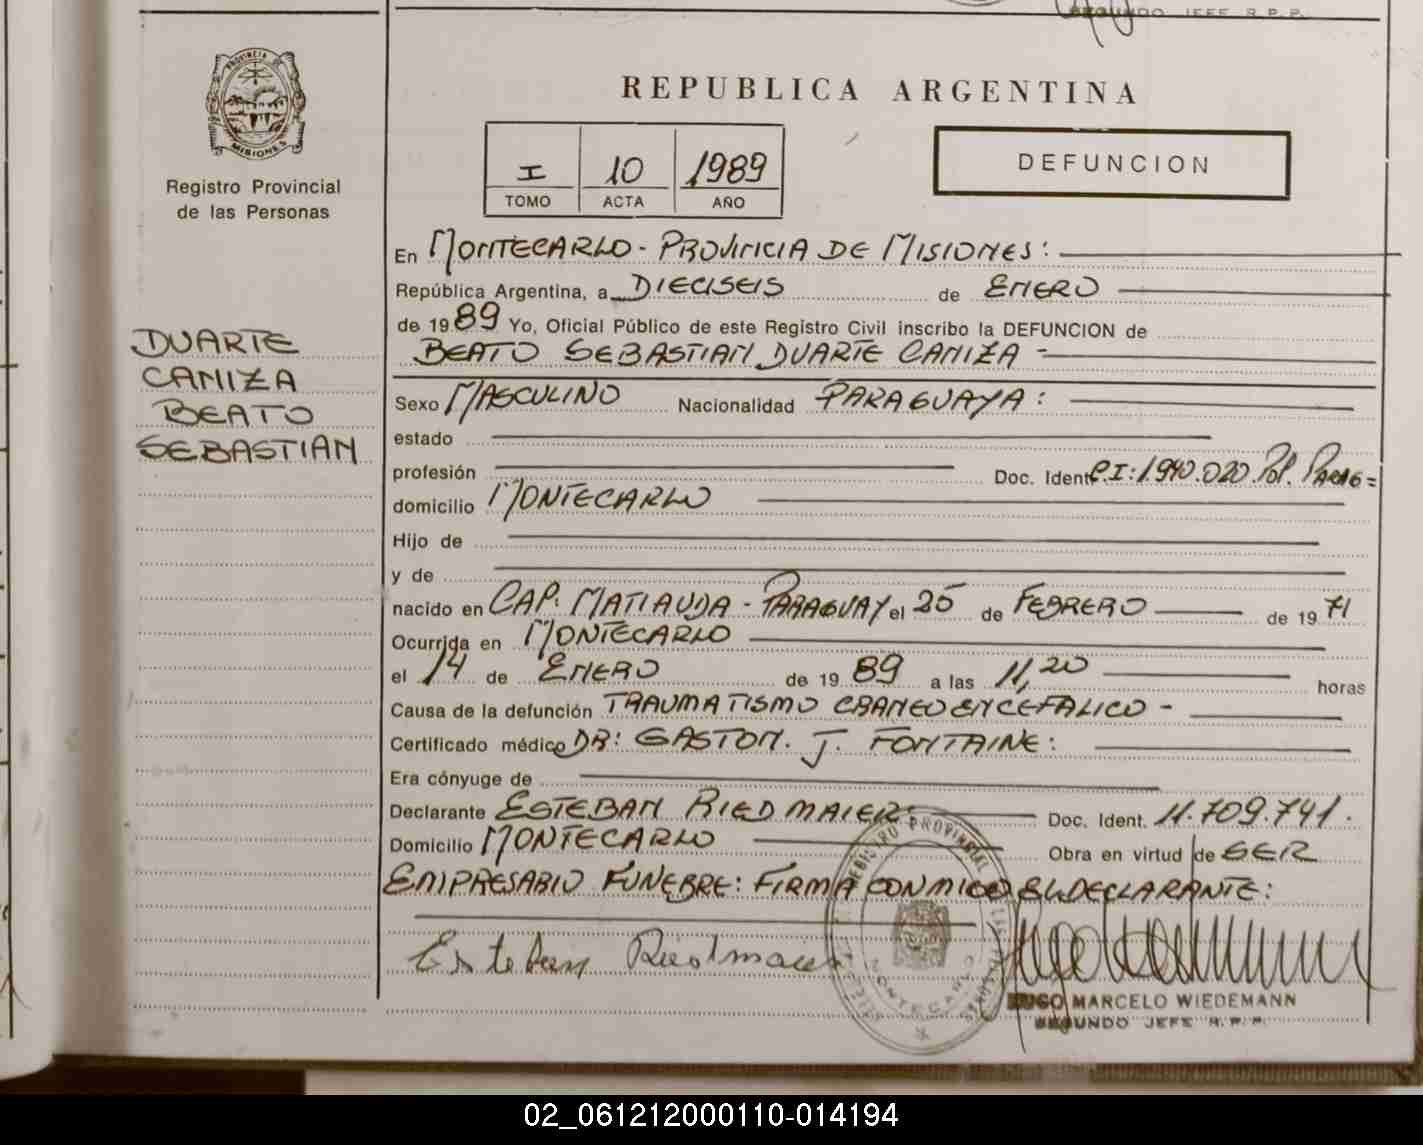 SEGUNDO JEFE R.P.P.
PROVINCIA DE
MISIONES
Registro Provincial
de las Personas
REPUBLICA ARGENTINA
I 10 1989
TOMO ACTA AÑO
DEFUNCION
DUARTE
CANIZA
BEATO
SEBASTIAN
En MONTECARLO - PROVINCIA DE MISIONES:
República Argentina, a DIECISEIS de ENERO
de 1989 Yo, Oficial Público de este Registro Civil inscribo la DEFUNCION de
BEATO SEBASTIAN DUARTE CANIZA -
Sexo MASCULINO Nacionalidad PARAGUAYA:
estado
profesión Doc. Ident. C.I: 1.940.020 Pol. PARAG=
domicilio MONTECARLO
Hijo de
y de
nacido en CAP. MATIAUDA - PARAGUAY el 25 de FEBRERO de 1971
Ocurrida en MONTECARLO
el 14 de ENERO de 1989 a las 11,20 horas
Causa de la defunción TRAUMATISMO CRANEOENCEFALICO -
Certificado médico DR: GASTON. J. FONTAINE:
Era cónyuge de
Declarante ESTEBAN RIEDMAIER Doc. Ident. 11.709.741.
Domicilio MONTECARLO Obra en virtud de SER
EMPRESARIO FUNEBRE: FIRMA CONMIGO EL DECLARANTE:
Esteban Riedmaier
REGISTRO PROVINCIAL DE LAS PERSONAS
MONTECARLO
HUGO MARCELO WIEDEMANN
SEGUNDO JEFE R.P.P.
02_061212000110-014194